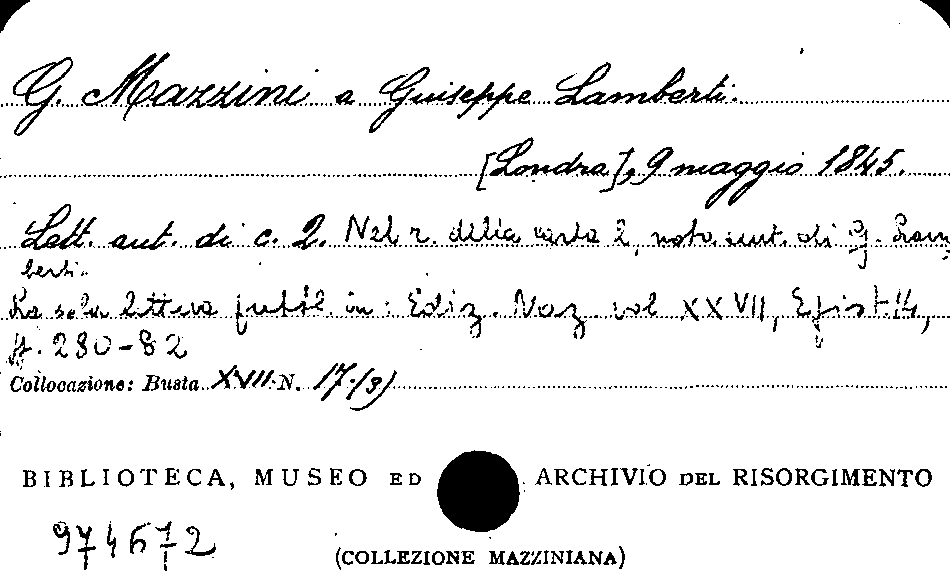 G. Mazzini a Guiseppe Lamberti.
[Londra], 9 maggio 1845.
Lett. aut. di c. 2. Nel r. della carta 2, nota aut. di G. Lam
berti.
La sola lettera pubbl. in: Ediz. Naz. vol XXVII, Epist. 14,
pp. 280-82
Collocazione: Busta XVII N. 17.(3)
BIBLIOTECA, MUSEO ED ARCHIVIO DEL RISORGIMENTO
974672
(COLLEZIONE MAZZINIANA)